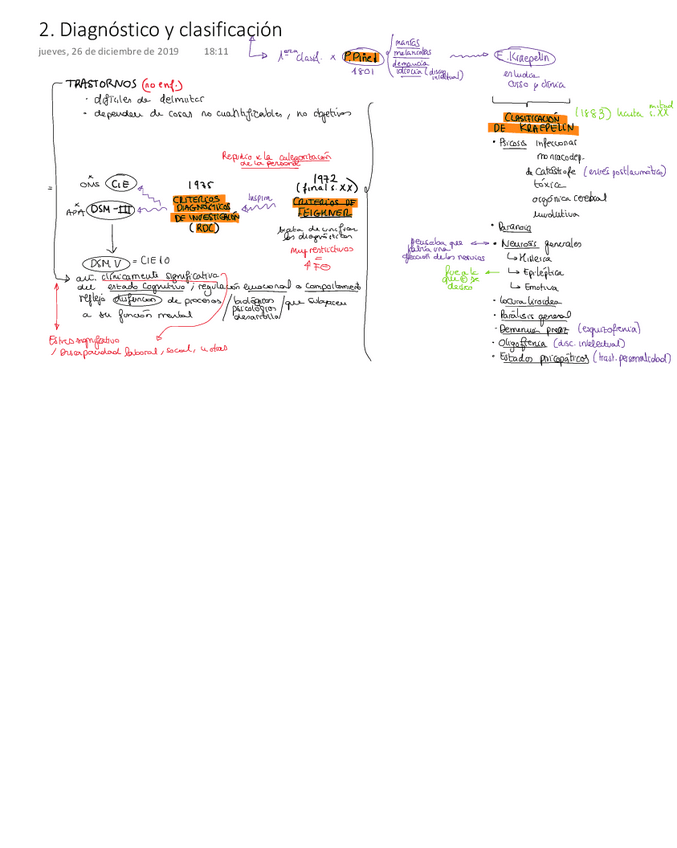 2. Diagnóstico y clasificación
jueves, 26 de diciembre de 2019 18:11
clasif. x P. Pinel
1801
manías
melancolías
demencia
idiocia (disc. intelectual)
E. Kraepelin
estudia
curso y clínica
TRASTORNOS (no enf.)
· difíciles de delimitar
· dependen de cosas no cuantificables, no objetivas
CLASIFICACIÓN
DE KRAEPELIN
(1883) hasta mitad s.XX
· Psicosis infecciosas
de Catástrofe (estrés postraumático)
tóxica
orgánica cerebral
involutiva
· Paranoia
· Neurosis generales
Histérica
Epiléptica
Emotiva
pensaba que
había una
de los nervios
· Parálisis general
· Demencia precoz (esquizofrenia)
· Oligofrenia (disc. intelectual)
· Estados psicopáticos (trast. personalidad)
Repudio x la categorización
de la persona
OMS CIE
APA DSM-III
1975
CRITERIOS
DIAGNÓSTICOS
DE INVESTIGACIÓN
(RDC)
inspira
1972
(final s.XX)
CRITERIOS DE
FEIGHNER
trata de unificar
los diagnósticos
muy restrictivos
=
DSM V = CIE 10
alt. clínicamente significativa
del estado cognitivo, regulación emocional o comportamiento
refleja disfunción de procesos / biológicos psicológicos desarrollo / que subyacen
a su función mental
Estrés significativo
/ Discapacidad laboral, social, u otras